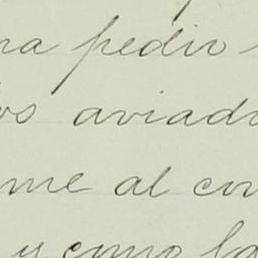 ra pedir
os aviado
me al con
y como la